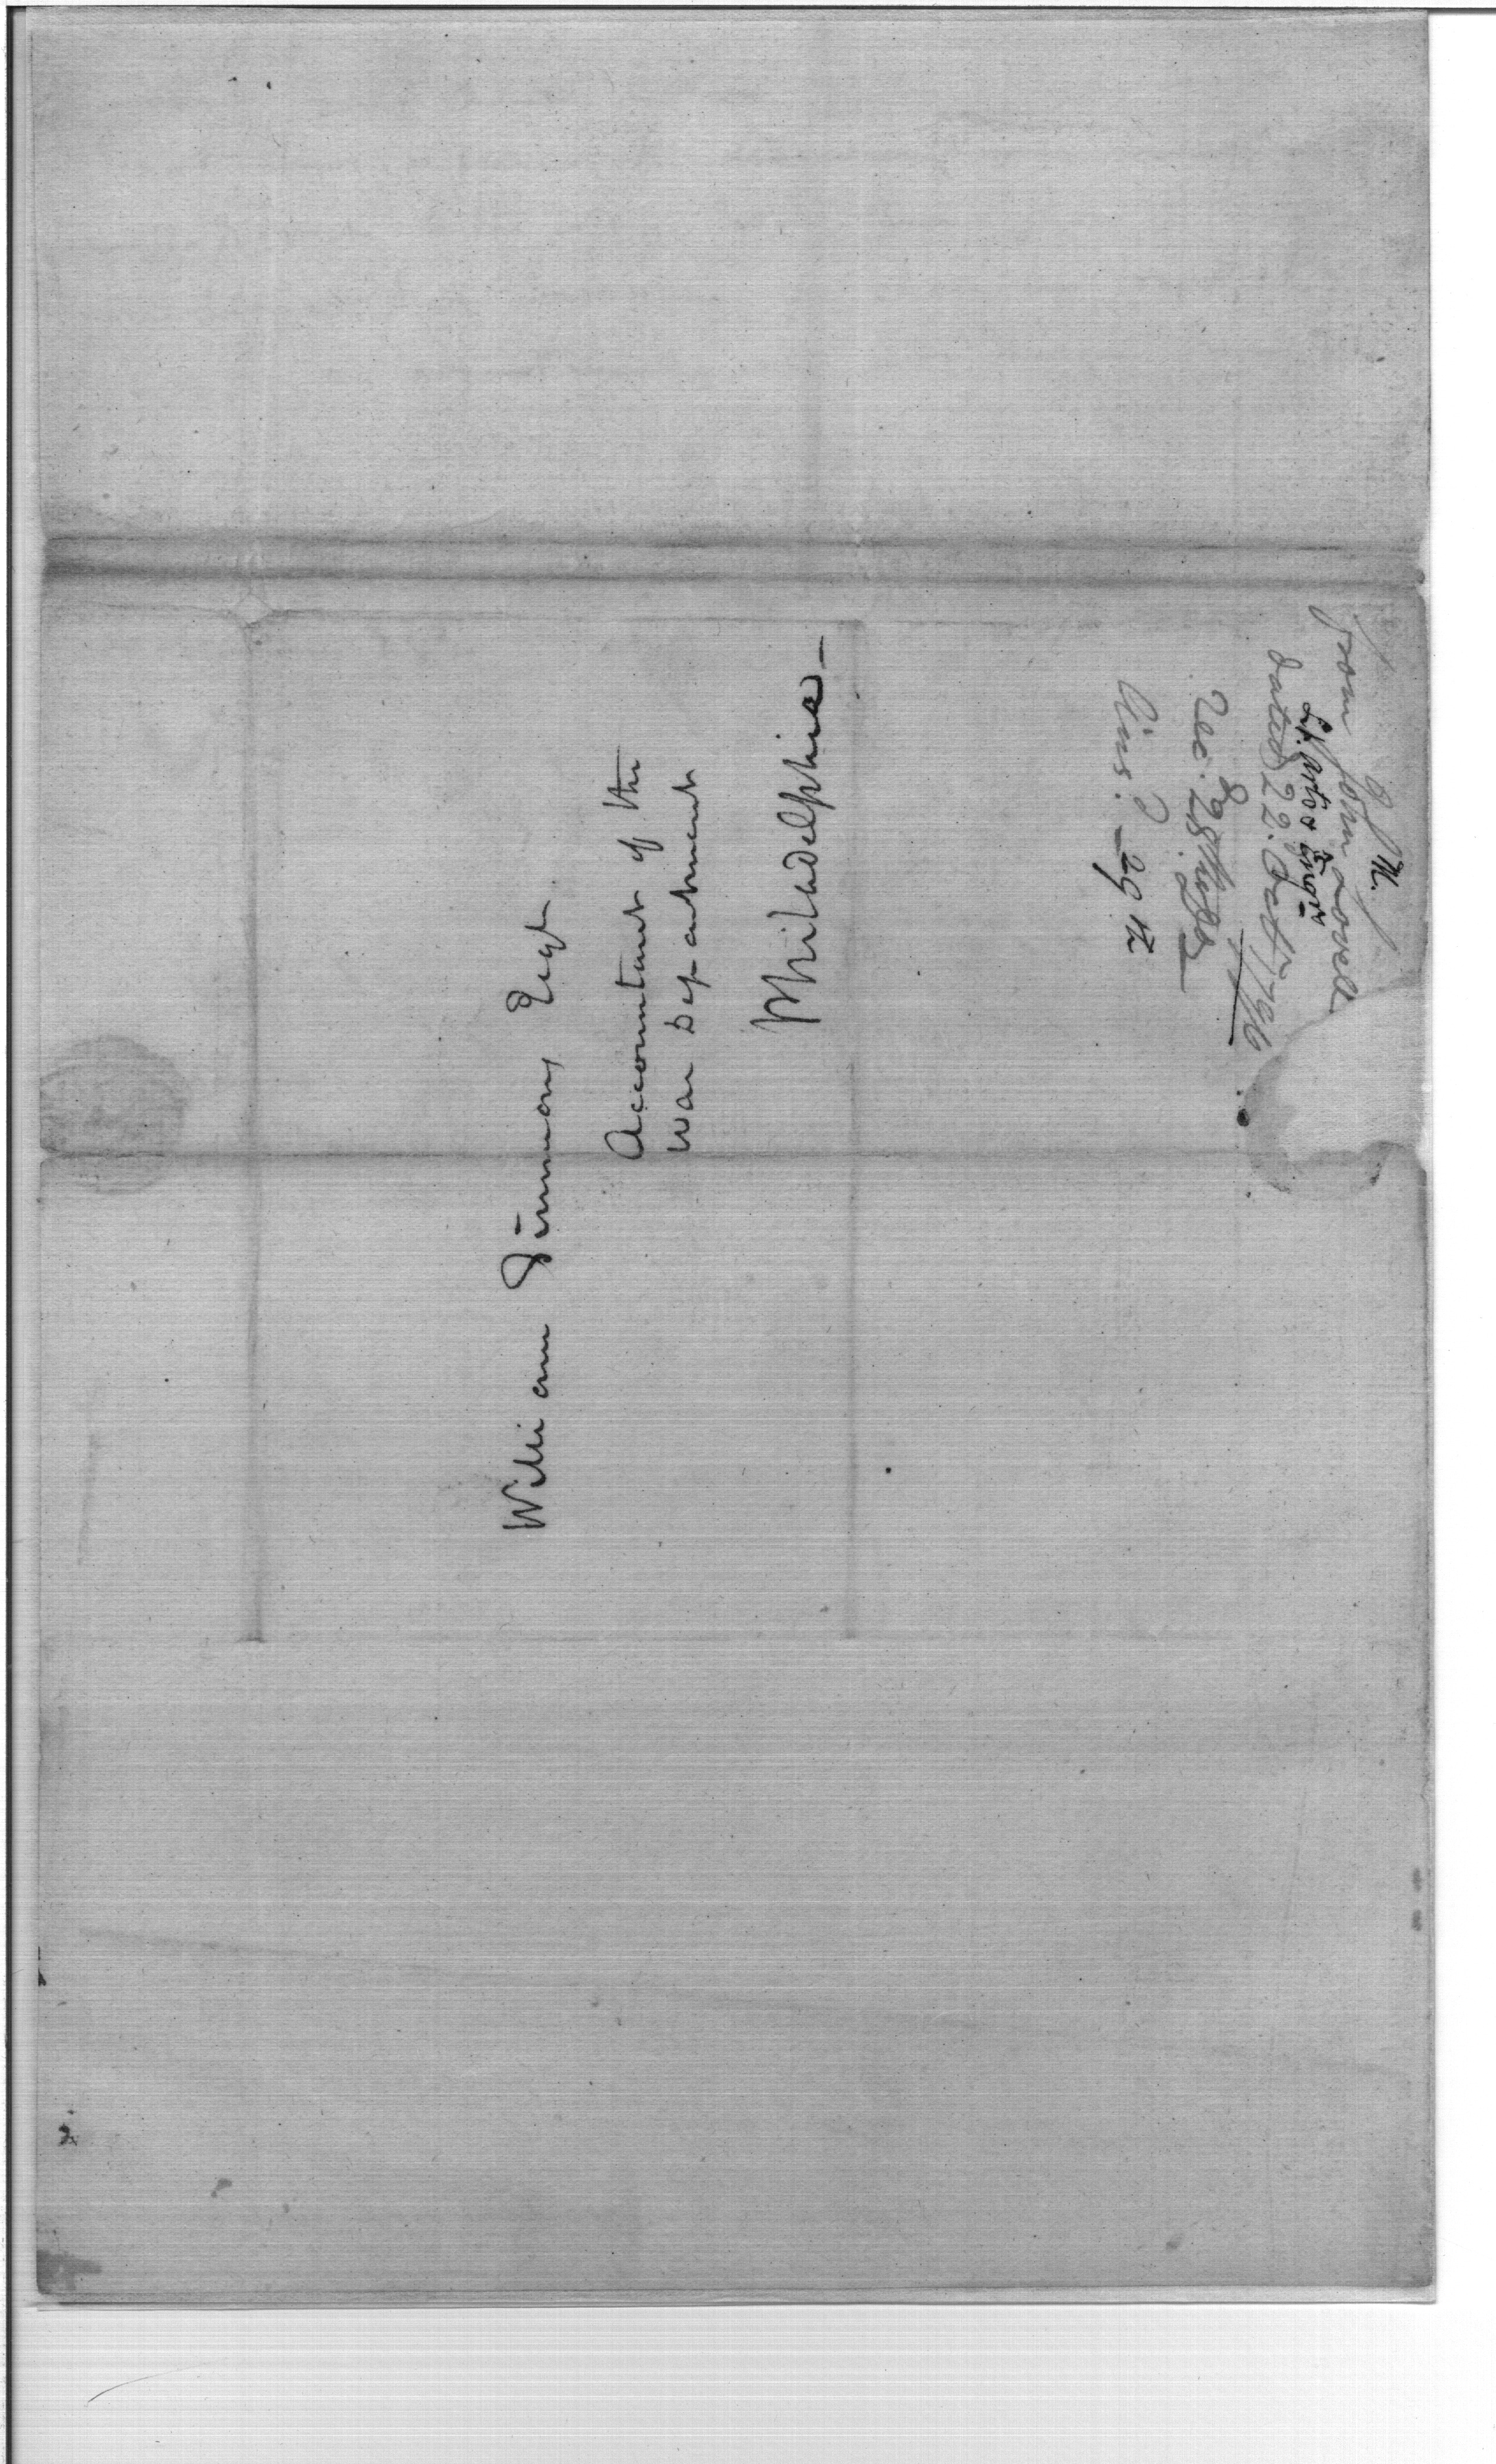 William Simmons Esqr.
Accountant of the
War Department
Philadelphia —
M.
from John Lovell
Lt. Arts & Engrs
dated 22. Oct. 1796
Rec.d 28th
Ans.d 29th